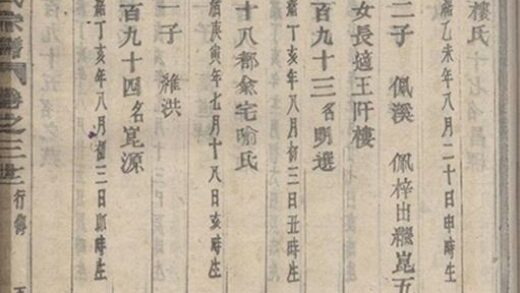 樓氏
乙未年八月二十日申時生
二子　佩溪　佩梓出繼崑五
女長適王阡樓
百九十三名明選
丁亥年八月初三日丑時生
十八都俞宅喻氏
庚寅年七月十八日亥時生
一子　雒洪
百九十四名崑源
丁亥年八月初三日卯時生
氏宗譜　卷之三　行傳